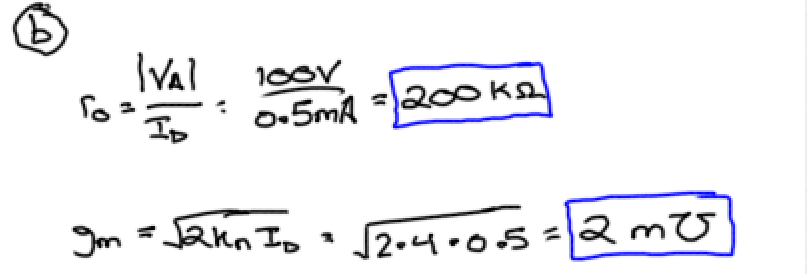 b
r₀ = |V_A| / I_D = 100V / 0.5mA = 200 KΩ
gm = √(2 K_n I_D) = √(2·4·0.5) = 2 m℧